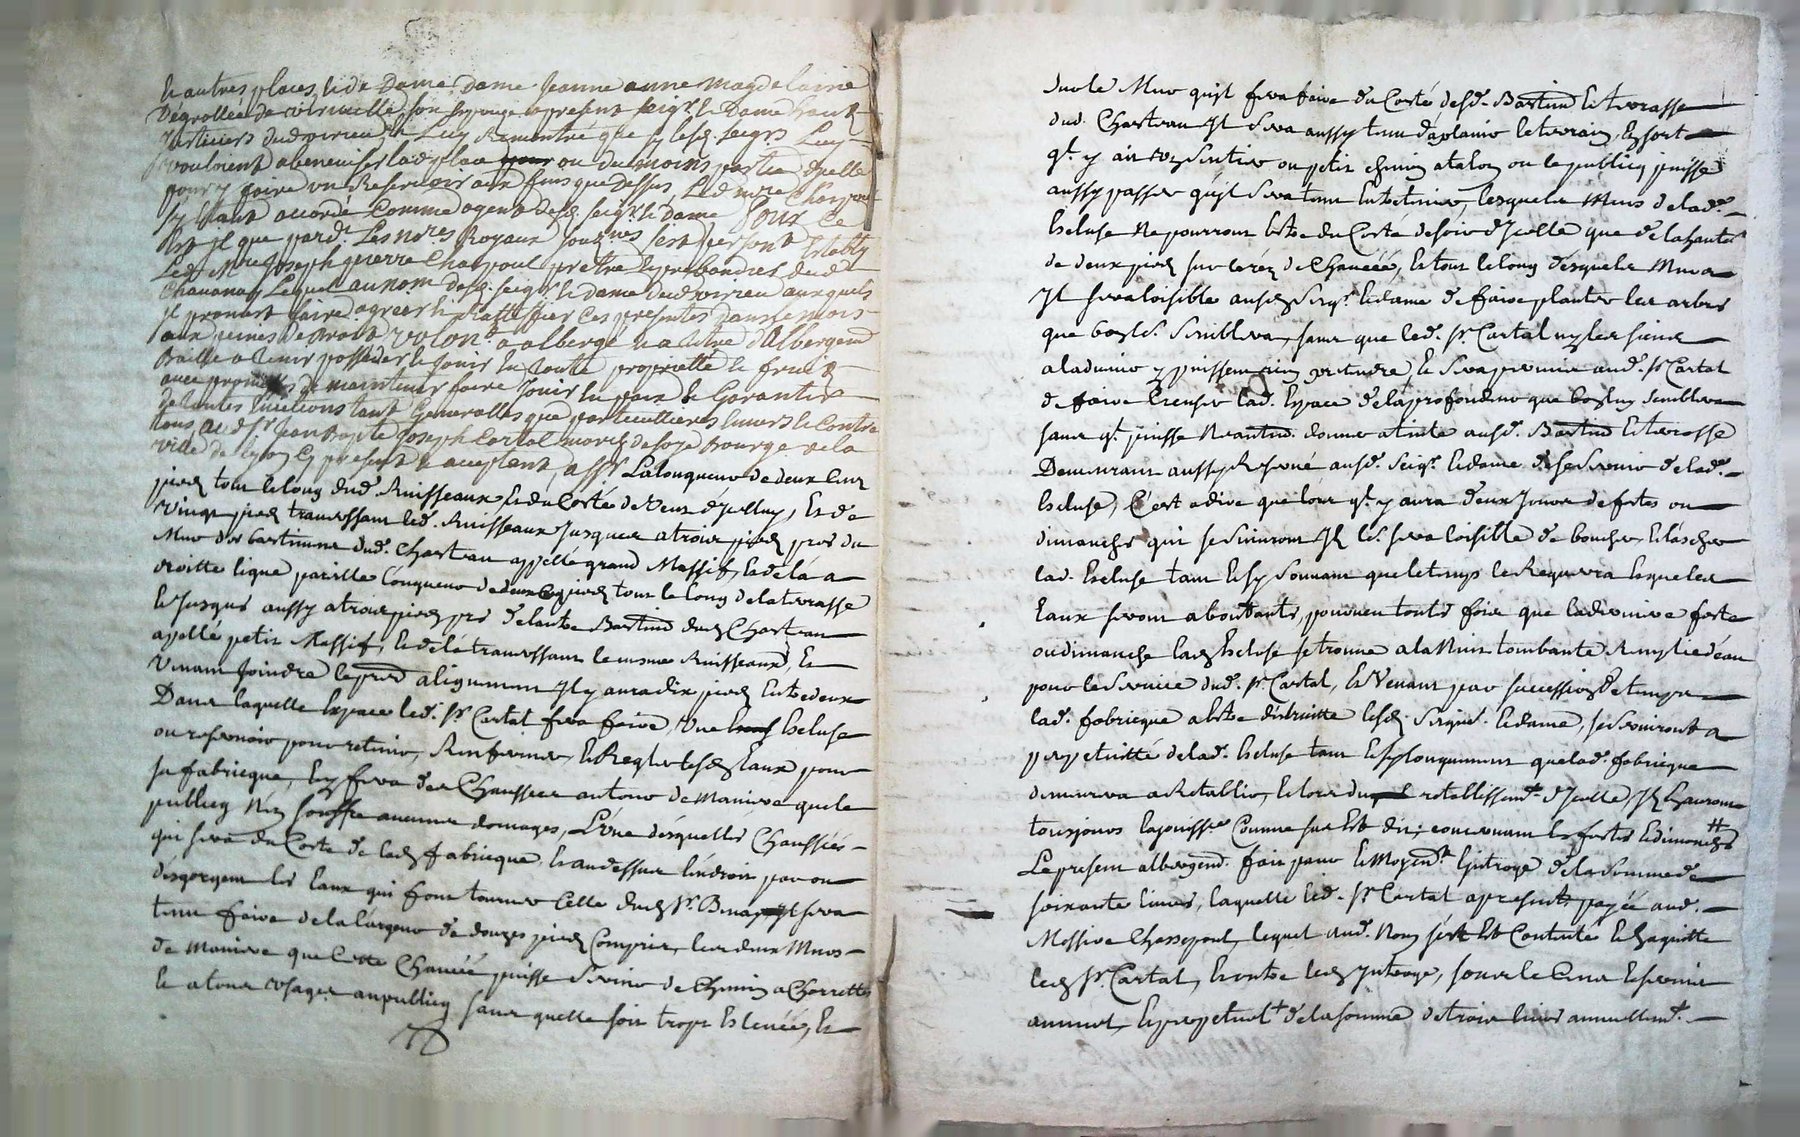 & autres places, & de Dame Dame Jeanne anne Magdelaine
Dégrollée de virieuville son Epouze apresent seigr. & Dame haut
Justiciers dud virieu & Luy Remontré que sy lesd. seigrs
vouloient abeneviser lad place ou du moins partie d'ycelle
pour y faire un Reservoir aux fins que dessus, Led mre Chaspoul
sy Estant accordé Comme agent desd. seigr. & Dame Pour Ce
Est jl que pardt. Les nores. Royaux sousnes. s'est persont Estably
Led. Mre Joseph pierre Chaspoul prêtre & prebendier dud
Chavanay Lequel au nom desd. seigr. & dame dud virieu auxquels
jl promet faire agreer & Rattiffier Ces presentes dans le mois
aux peines de Droit volont. a albergé & a titre d'albergemt
Baille a tenir posseder & jouir En toute proprietté & fruits
avec promesses de maintenir faire jouir En paix & Garantir
de toutes Evictions tant Generalles que particullieres Envers & Contre
tous au dt. Sr. Jean Bapte Joseph Cartal march de soye Bourge. de la
ville de Lyon Cy present & acceptant, a Sçr. La Longueur de deux Cent
pieds tout le long dud. Ruisseaux & du Costé de vent d'ycelluy, Et de
vingt pieds traverssant led. Ruisseaux Jusques a trois pieds pres du
Mur dud. Chasteau appellé grand Massif, & de la a
droitte ligne pareille Longueur de deux Cent pieds tout le long de la terrasse
& Jusques aussy a trois pieds pres de lautre Bastimt dud Chasteau
apellé petit Massif, & de la traverssant le mesme Ruisseaux, &
venant joindre le premier alignement Jl y aura dix pieds Entre deux
Dans laquelle Espace led. Sr. Cartal fera faire, une Escluse
ou reservoir pour retenir, Renfermer, & Regler lesd Eaux pour
sa fabricque, Et fera des Chaussées autour de maniere que le
publicq N'en souffre aucunes domages, L'une desquelles Chaussées
qui sera du Costé de lad fabricque, & au dessus l'endroit par ou
desgorgent les Eaux qui font tourner Celle dud Sr. Jl sera
tenu faire de la largeur de douzes pieds Compris, les deux Murs
de maniere que Cette Chaucée puisse servir de Chemin a Charrettes
& a tous usages au publicq sans quelle soit trops Eslevée, Et
sur le Mur qu'jl fera faire du Costé desd. Bastimt & terrasse
dud. Chasteau Jl sera aussy tenu d'aplanir le terrain, En sorte
qt. y ait un sentier ou petit chemin a talon ou le publicq puisse
aussy passer qu'jl sera tenu Entretenir, lesquels Murs de lad.
Escluse Ne pourront Estre du Costé de soir d'ycelle que de la hauteur
de deux pieds sur le réz de Chaucée, & tout le long desquels Murs
Jl sera loisible ausd. Seigr. & dame de faire planter les arbres
que bon leur Semblera, sans que led. Sr. Cartal ny les siens
a ladvenir y puissent rien pretendre, & Sera permis aud. Sr. Cartal
de faire Creuser lad. Espace de la profondeur que bon luy Semblera
sans qt. puisse Neantmt. donner atinte ausd. Bastimt & terrasse
Demeurant aussy Reservé ausd. Seigr. & dame de se servir de lad.
Escluse, C'est a dire que lors qt. y aura deux Jours de festes ou
dimanche qui se suivront Jl leur sera loisible de boucher & lascher
lad. Escluse tant & sy souvant que le temps le Requerra & que les
Eaux seront abondants, pourveu toutes fois que la derniere feste
ou dimanche lad Escluse se trouve a la Nuit tombante Remplie d'éau
pour le service dud. Sr. Cartal, & Venant par succession de temps
lad. fabricque a Estre distruitte lesd. Seigrs. & dame, se serviront a
perpetuitté de lad. Escluse tant & sy longuement que lad. fabricque
demeurera a Restablir, & lors du restablissemt. d'ycelle, Jls hauront
tousjours la jouissce. Comme sus Est dit, concernant les festes & dimanches
Le present albergemt. fait pour & Moyent. L'jntroge de la somme de
soixante livres, laquelle led. Sr. Cartal a presentt payée aud.
Messire Chasspoul, lequel aud. Nom s'en Est Contenté & En quitte
led Sr. Cartal, & outre led jntroge, sous le Cens & servis
annuel, & perpetuel de la somme de trois livres annuellemt.